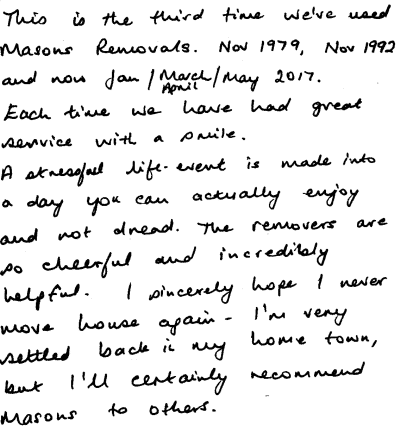 This is the third time we've used
Masons Removals. Nov 1979, Nov 1992
and now Jan / March / May 2017.
April
Each time we have had great
service with a smile.
A stressful life-event is made into
a day you can actually enjoy
and not dread. The removers are
so cheerful and incredibly
helpful. I sincerely hope I never
move house again - I'm very
settled back in my home town,
but I'll certainly recommend
Masons to others.